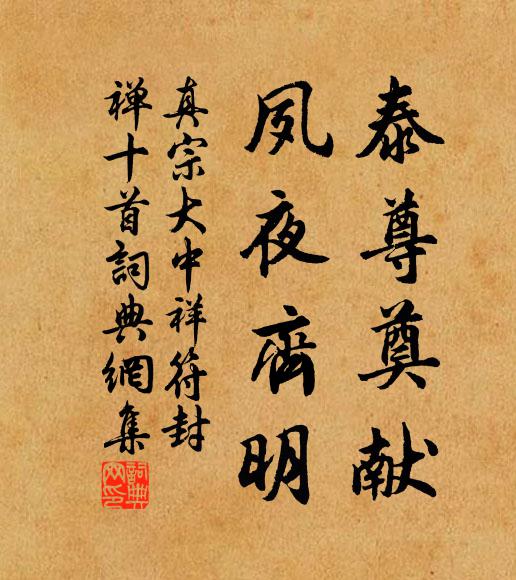 泰尊奠献
夙夜齊明
真宗大中祥符封
禅十首詞典網集
詞典
网印